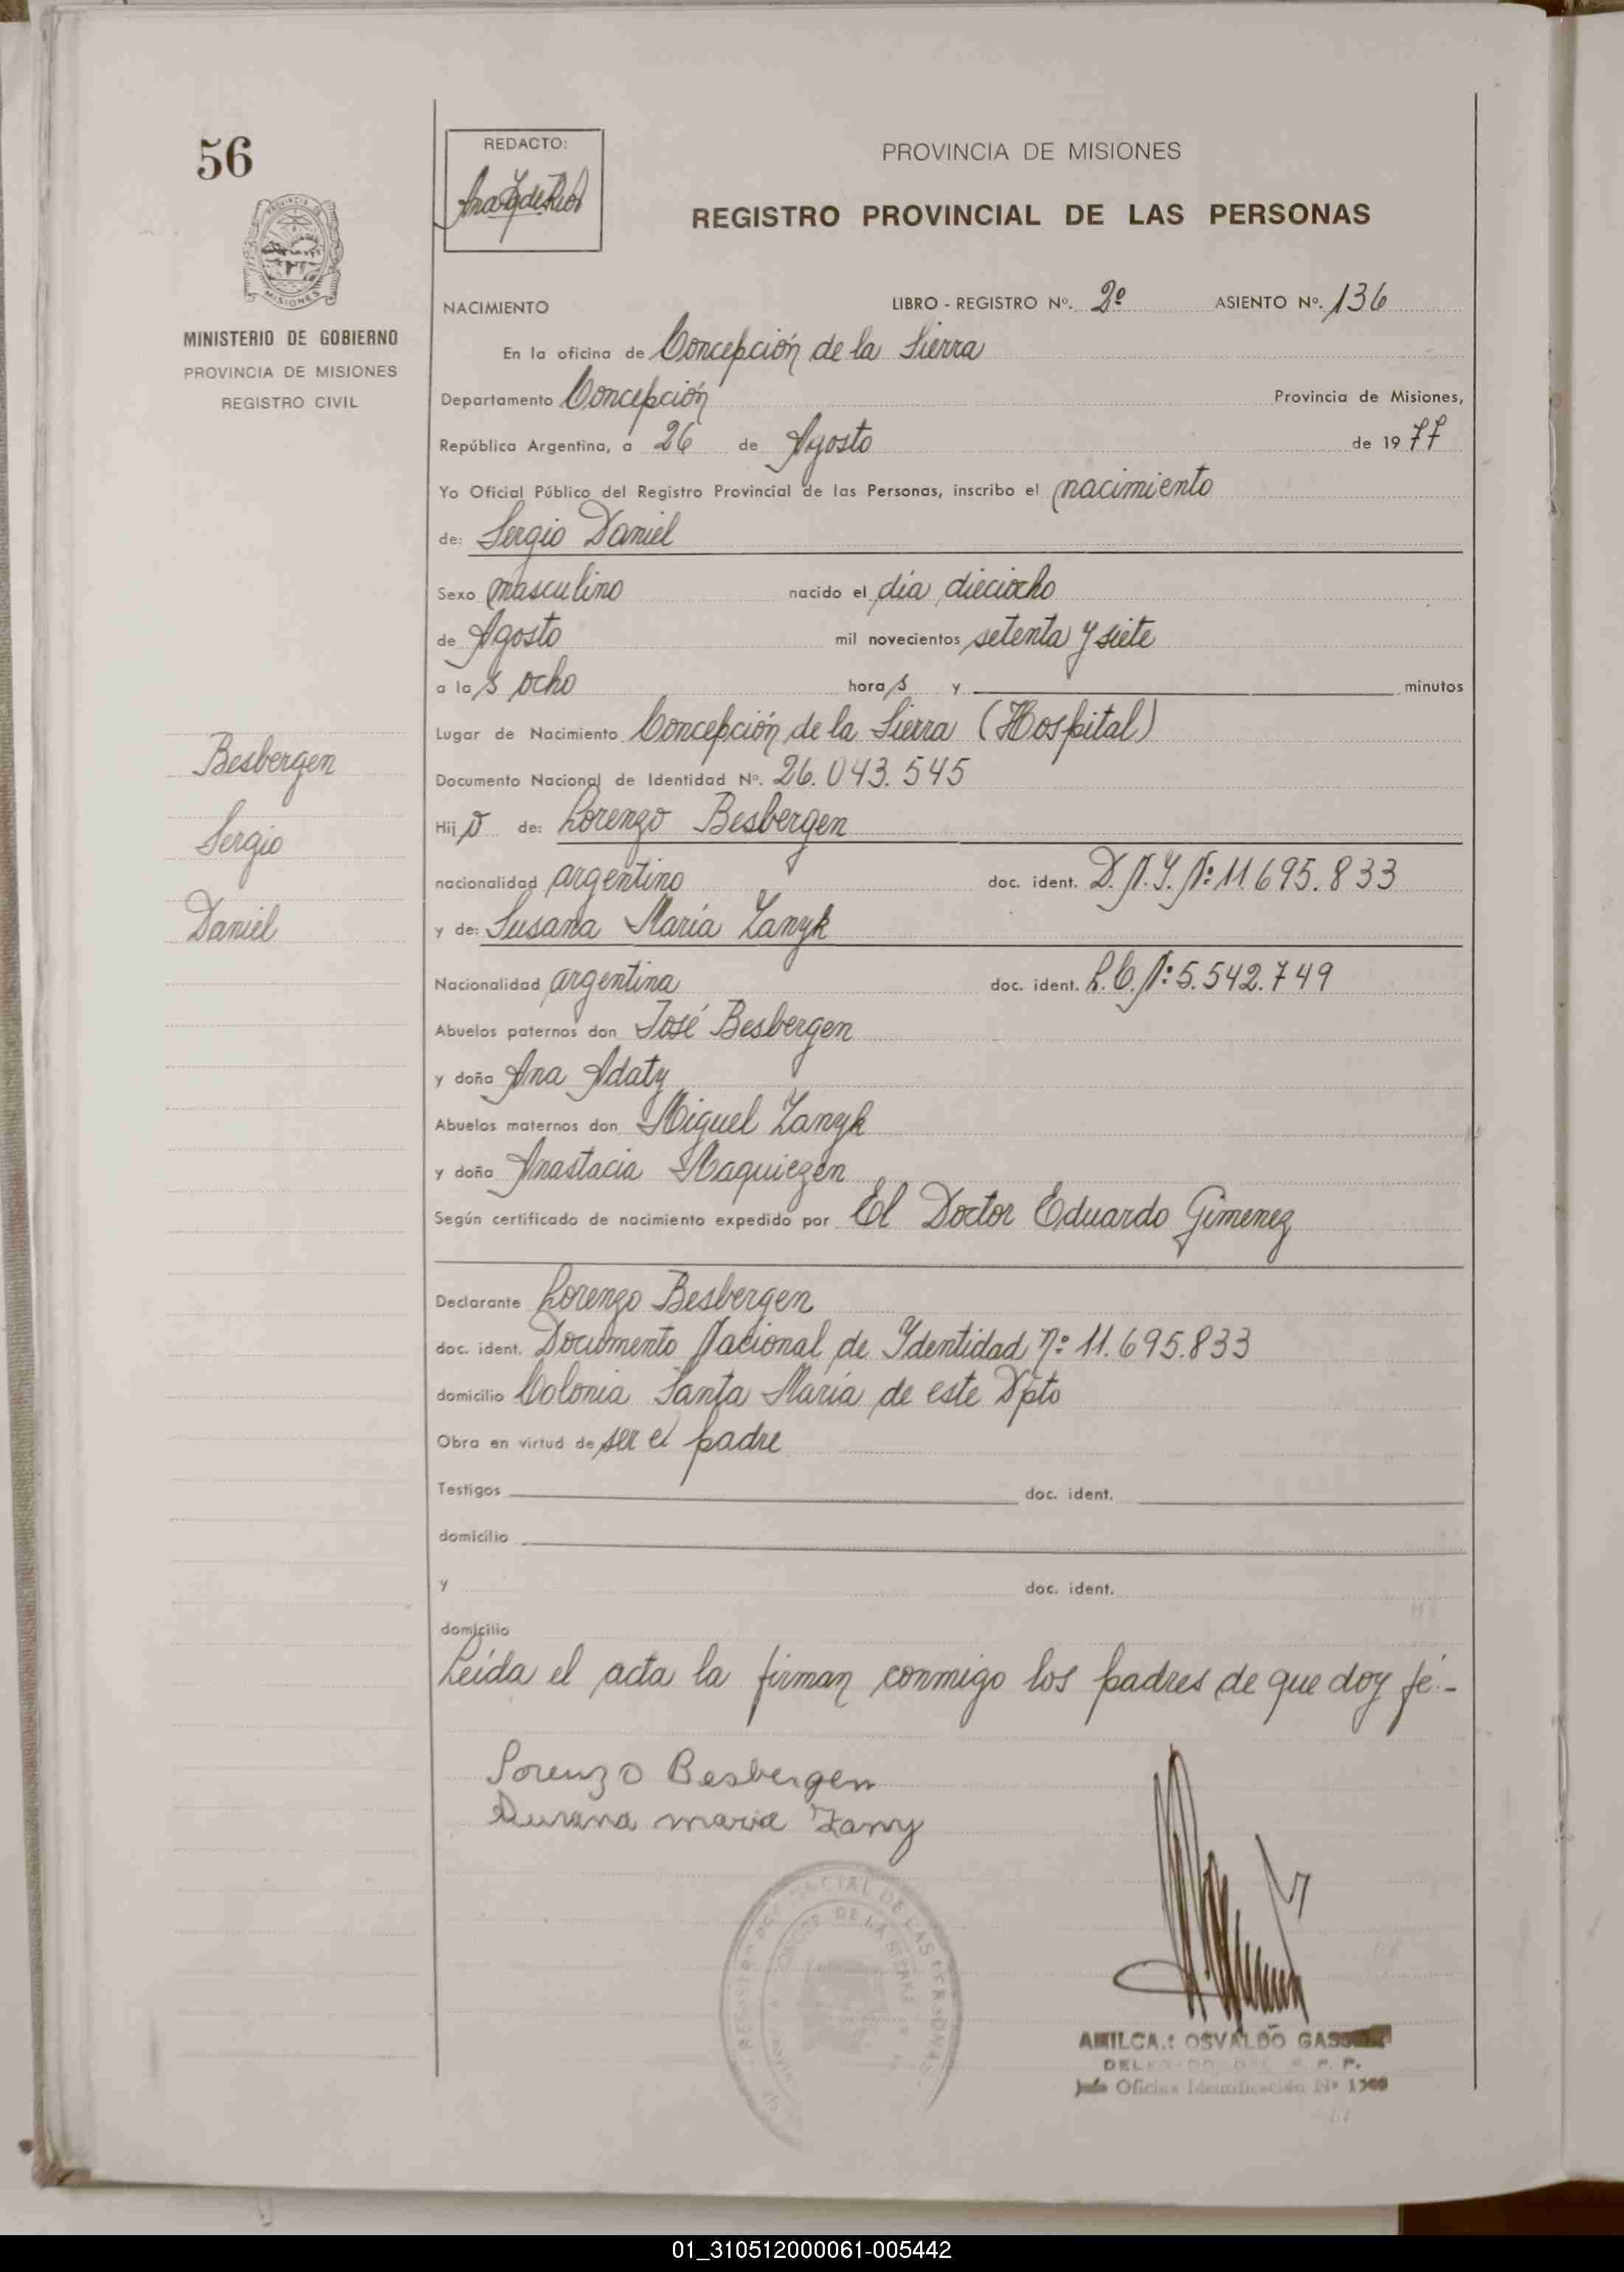 56
MINISTERIO DE GOBIERNO
PROVINCIA DE MISIONES
REGISTRO CIVIL
Besbergen
Sergio
Daniel
REDACTO:
PROVINCIA DE MISIONES
REGISTRO PROVINCIAL DE LAS PERSONAS
NACIMIENTO LIBRO - REGISTRO Nº. 2º ASIENTO Nº. 136
En la oficina de Concepción de la Sierra
Departamento Concepción Provincia de Misiones,
República Argentina, a 26 de Agosto de 1977
Yo Oficial Público del Registro Provincial de las Personas, inscribo el nacimiento
de: Sergio Daniel
Sexo masculino nacido el día dieciocho
de Agosto mil novecientos setenta y siete
a las ocho horas y minutos
Lugar de Nacimiento Concepción de la Sierra (Hospital)
Documento Nacional de Identidad Nº. 26.043.545
Hijo de: Lorenzo Besbergen
nacionalidad argentino doc. ident. D.N.I. Nº 11.695.833
y de: Susana María Zanyk
Nacionalidad argentina doc. ident. L.C. Nº 5.542.749
Abuelos paternos don José Besbergen
y doña Ana Adaty
Abuelos maternos don Miguel Zanyk
y doña Anastacia Maquiezen
Según certificado de nacimiento expedido por El Doctor Eduardo Gimenez
Declarante Lorenzo Besbergen
doc. ident. Documento Nacional de Identidad Nº 11.695.833
domicilio Colonia Santa María de este Dpto
Obra en virtud de ser el padre
Testigos doc. ident.
domicilio
y doc. ident.
domicilio
Leída el acta la firman conmigo los padres de que doy fé.-
Lorenzo Besbergen
Susana maria Zany
OSVALDO
Oficina Identificación Nº
01_310512000061-005442